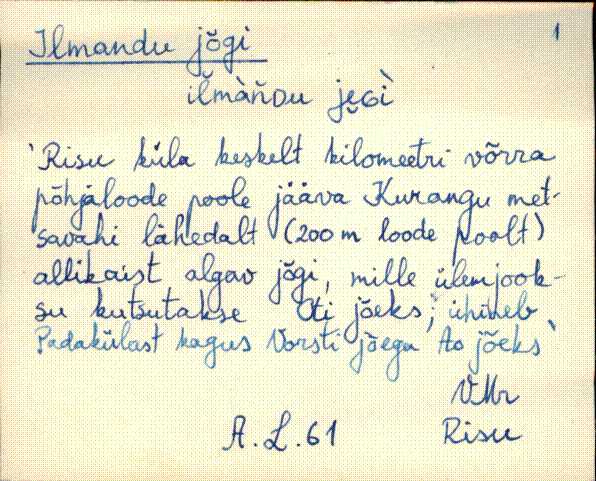 Ilmandu jõgi 1
il̆màn̆Du je̮Gì
'Risu küla keskelt kilomeetri võrra
põhjaloode poole jääva Kurangu met-
savahi lähedalt (200 m loode poolt)
allikaist algav jõgi, mille ülemjook-
su kutsutakse Oti jõeks; ühineb
Padakülast kagus Vorsti jõega Ao jõeks'
VMr
A.L.61 Risu